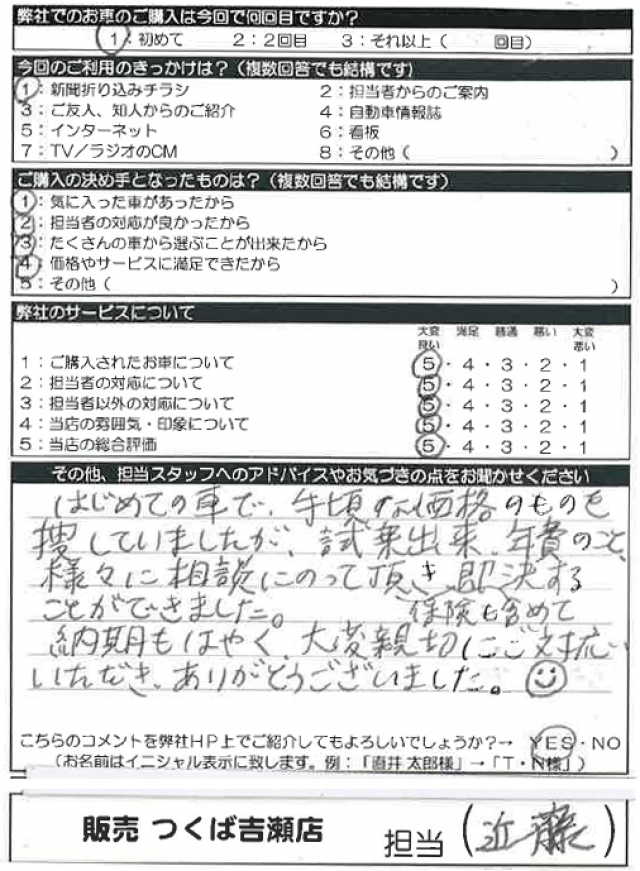 弊社でのお車のご購入は今回で何回目ですか？
1：初めて 2：2回目 3：それ以上（ 回目）
今回のご利用のきっかけは？（複数回答でも結構です）
1：新聞折り込みチラシ 2：担当者からのご案内
3：ご友人、知人からのご紹介 4：自動車情報誌
5：インターネット 6：看板
7：TV／ラジオのCM 8：その他（ ）
ご購入の決め手となったものは？（複数回答でも結構です）
1：気に入った車があったから
2：担当者の対応が良かったから
3：たくさんの車から選ぶことが出来たから
4：価格やサービスに満足できたから
5：その他（ ）
弊社のサービスについて
大変良い 満足 普通 悪い 大変悪い
1：ご購入されたお車について 5・4・3・2・1
2：担当者の対応について 5・4・3・2・1
3：担当者以外の対応について 5・4・3・2・1
4：当店の雰囲気・印象について 5・4・3・2・1
5：当店の総合評価 5・4・3・2・1
その他、担当スタッフへのアドバイスやお気づきの点をお聞かせください
はじめての車で、手頃な価格のものを
捜していましたが、試乗出来、年費のこと、
様々に相談にのって頂き、即決する
ことができました。 保険も含めて
納期もはやく、大変親切にご対応
いただき、ありがとうございました。
こちらのコメントを弊社HP上でご紹介してもよろしいでしょうか？→ YES・NO
（お名前はイニシャル表示に致します。例：「直井 太郎様」→「T・N様」）
販売 つくば吉瀬店 担当（近藤）